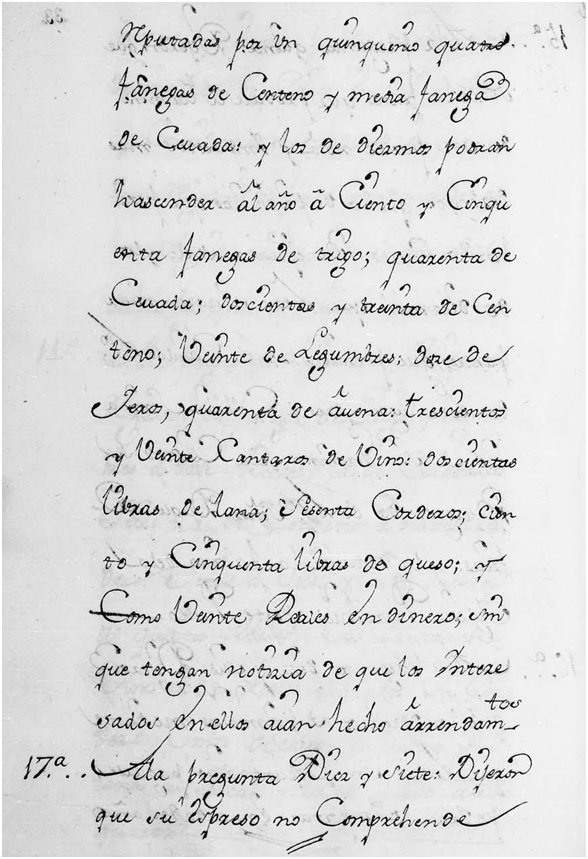 Rputadas por un quinquenio quatro
fanegas de Centeno y media fanega
de Cevada: y los de diezmos podran
hascender al año â Ciento y Cinqu
enta fanegas de trigo; quarenta de
Cevada; doscientas y treinta de Cen
teno; Veinte de Legumbres: doze de
Jeros, quarenta de avena: trescientos
y Veinte Cantaros de Vino: doscientas
libras de lana; Sesenta Corderos; cien
to y Cinquenta libras de queso; y
Como Veinte Reales en dinero; sin
que tengan noticia de que los Intere
sados en ellos aian hecho arrendamtos
17.a.. Ala pregunta Diez y siete: Dijeron
que su espreso no Comprehende